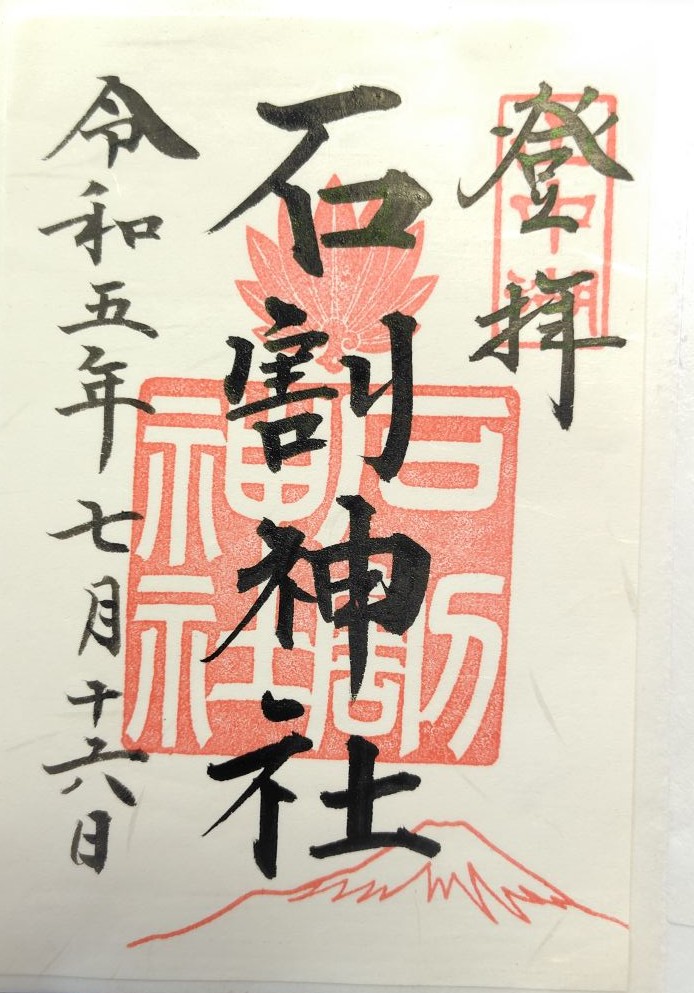 登拝
山中湖
石割神社
石割神社
令和五年七月十六日